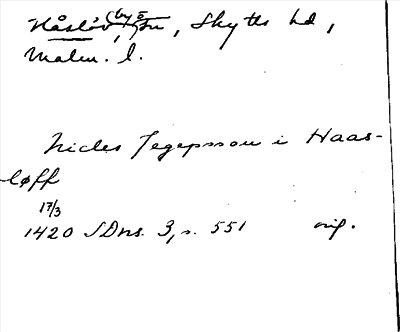 Håslöv, by o sn, Skytts hd,
Malm. l.
Nicles Jegepsson i Haas-
løff
17/3
1420 SDns. 3, s. 551 orig.